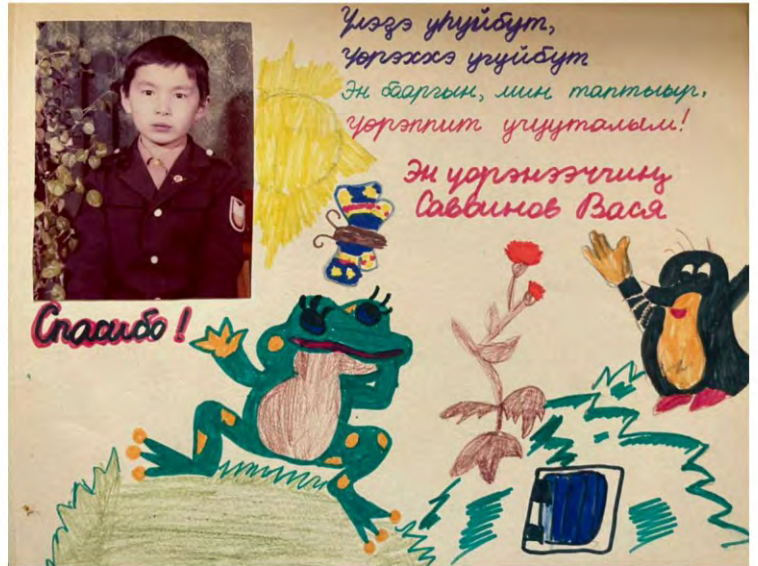 Үлэҕэ уһуйбут,
Үөрэххэ угуйбут
Эн бааргын, мин таптыыр,
Үөрэппит учууталым!
Эн үөрэнээччиҥ
Саввинов Вася
Спасибо!